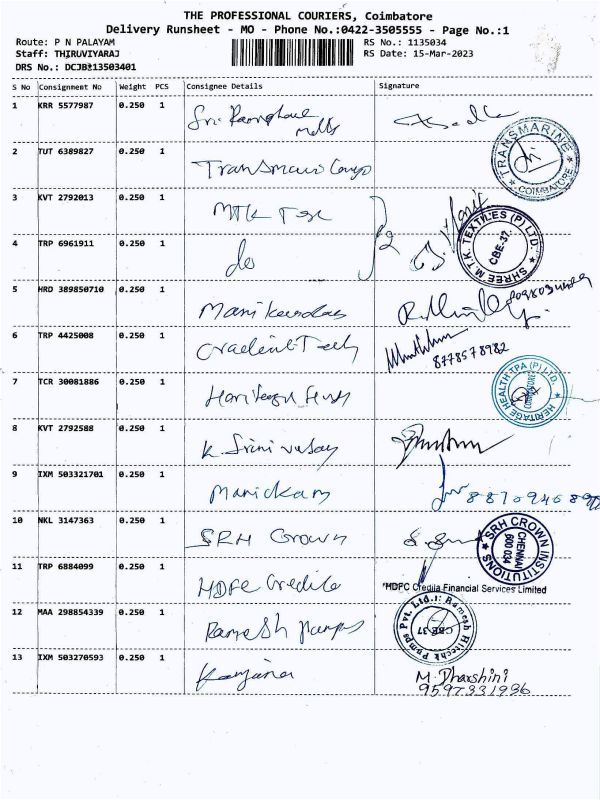 THE PROFESSIONAL COURIERS, Coimbatore
Delivery Runsheet - MO - Phone No.:0422-3505555 - Page No.:1
Route: P N PALAYAM
RS No.: 1135034
Staff: THIRUVIYARAJ
RS Date: 15-Mar-2023
DRS No.: DCJB113503401
S No Consignment No Weight PCS Consignee Details Signature
1 KRR 5577987 0.250 1 Sri
TRANSMARINE COIMBATORE
2 TUT 6389827 0.250 1
3 KVT 2792013 0.250 1 MTK Tex
SHREE M.T.K. TEXTILES (P) LTD. CBE-37.
4 TRP 6961911 0.250 1 do
5 HRD 389850710 0.250 1
6 TRP 4425008 0.250 1
8778578982
7 TCR 30081886 0.250 1
HERITAGE HEALTH TPA (P) LTD. COIMBATORE
8 KVT 2792588 0.250 1 K. Srinivasan
9 IXM 503321701 0.250 1 Manickam
10 NKL 3147363 0.250 1 SRH Crown
SRH CROWN INSTITUTIONS CHENNAI 600 034
11 TRP 6884099 0.250 1 HDFC Credila
HDFC Credila Financial Services Limited
12 MAA 298854339 0.250 1 Ramesh Pumps
Ramesh Hitechk Pumps Pvt. Ltd. CBE-37
13 IXM 503270593 0.250 1
M. Dharshini
9597331996